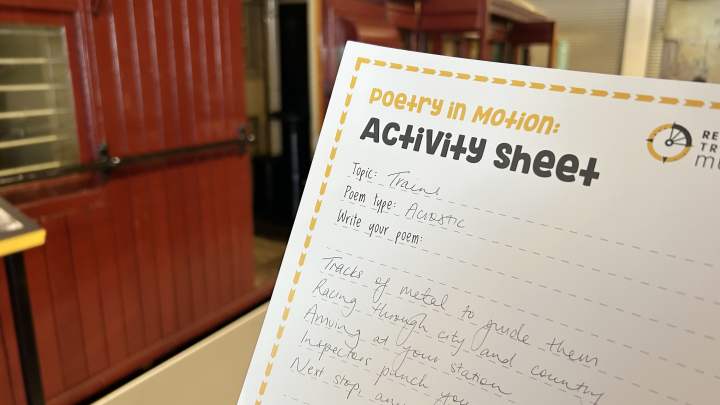 Poetry in Motion:
Activity Sheet
Topic: Trains
Poem type: Acrostic
Write your poem:
Tracks of metal to guide them
Racing through city and country
Arriving at your station
Inspectors punch
Next stop,